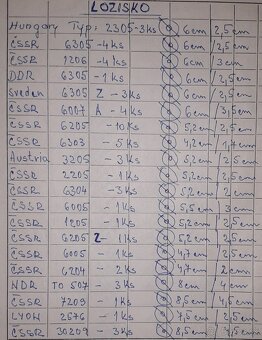 LOZISKO
Hungary Typ: 2305-3ks 6cm/2,5cm
ČSSR 6305-4ks 6cm/2,5cm
ČSSR 1206-4ks 6cm/3cm
DDR 6305-1ks 6cm/2,5cm
Sveden 6305 Z-3ks 6cm/2,5cm
ČSSR 6007 A-4ks 6cm/3,5cm
ČSSR 6205-10ks 5,2cm/2,5cm
ČSSR 6303-5ks 4,2cm/1,7cm
Austria 3205-3ks 5,2cm/2,5cm
ČSSR 2205-1ks 5,2cm/2,5cm
ČSSR 6304-3ks 5,2cm/2cm
ČSSR 6005-1ks 5,5cm/3cm
ČSSR 1205-1ks 5,2cm/2,5cm
ČSSR 6205 Z-11ks 5,2cm/2,5cm
ČSSR 6005-1ks 4,7cm/2,5cm
ČSSR 6204-2ks 4,7cm/2cm
NDR TO 507-3ks 8cm/4cm
ČSSR 7209-1ks 8,5cm/4,5cm
LYON 2676-1ks 7cm/2,5cm
ČSSR 30209-3ks 8,5cm/4,5cm